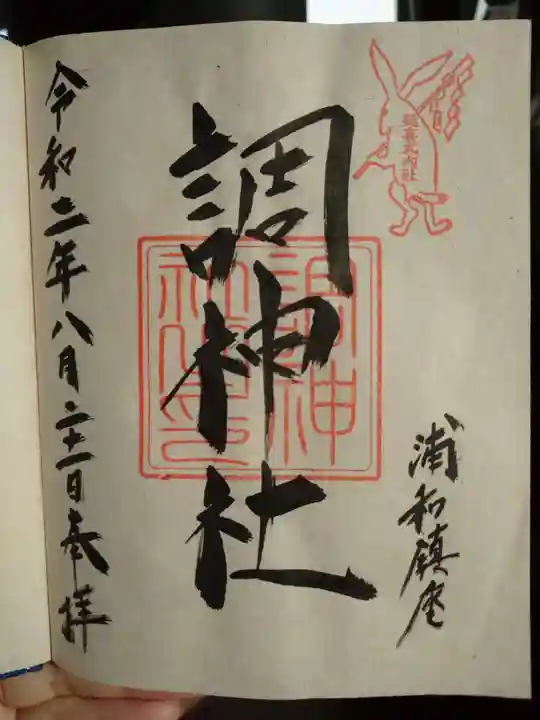 浦和鎮座
延喜式内社
調神社
調神
社之印
令和二年八月二十二日奉拝